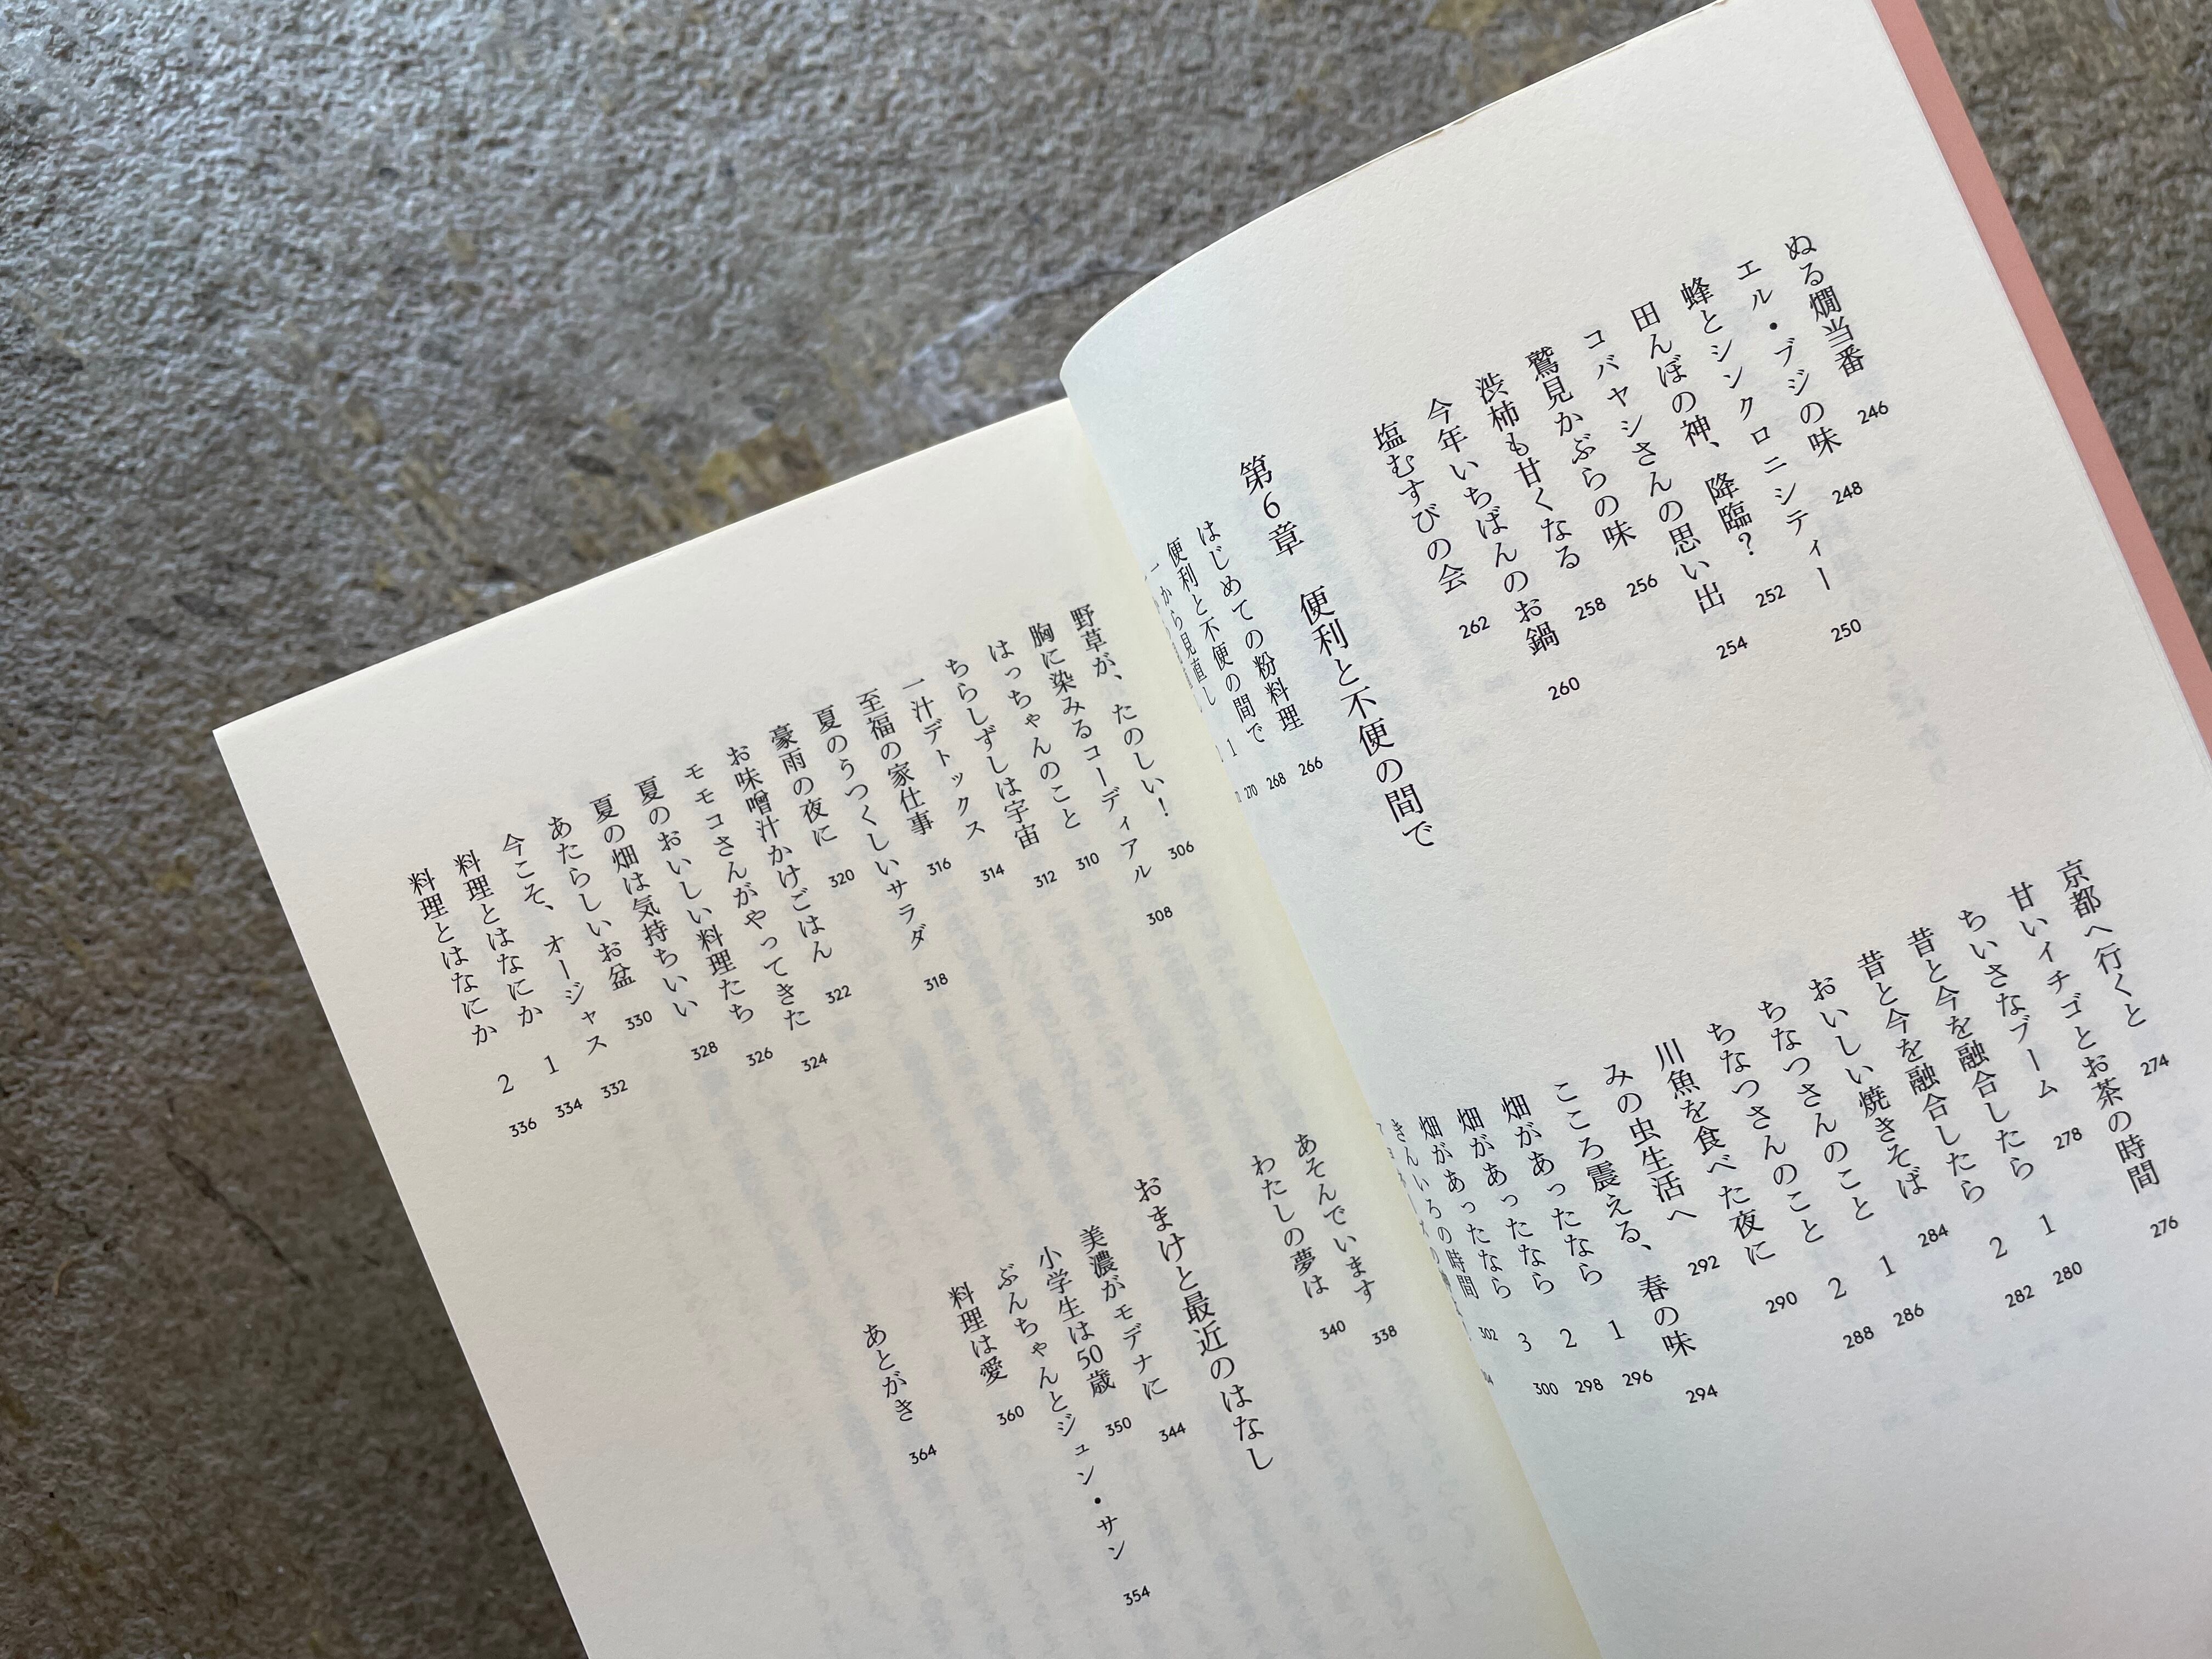 ぬる燗当番 246
エル・ブジの味 248
蜂とシンクロニシティー 250
田んぼの神、降臨? 252
コバヤシさんの思い出 254
鷲見かぶらの味 256
渋柿も甘くなる 258
今年いちばんのお鍋 260
塩むすびの会 262
第6章 便利と不便の間で
はじめての粉料理 266
便利と不便の間で 1 268
一から見直し 270
京都へ行くと 274
甘いイチゴとお茶の時間 276
ちいさなブーム 278
昔と今を融合したら 1 280
昔と今を融合したら 2 282
おいしい焼きそば 284
ちなつさんのこと 1 286
ちなつさんのこと 2 288
川魚を食べた夜に 290
みの虫生活へ 292
こころ震える、春の味 294
畑があったなら 1 296
畑があったなら 2 298
畑があったなら 3 300
きんいろの時間 302
野草が、たのしい! 306
胸に染みるコーディアル 308
はっちゃんのこと 310
ちらしずしは宇宙 312
一汁デトックス 314
至福の家仕事 316
夏のうつくしいサラダ 318
豪雨の夜に 320
お味噌汁かけごはん 322
モモコさんがやってきた 324
夏のおいしい料理たち 326
夏の畑は気持ちいい 328
あたらしいお盆 330
今こそ、オージャス 332
料理とはなにか 1 334
料理とはなにか 2 336
あそんでいます 338
わたしの夢は 340
おまけと最近のはなし
美濃がモデナに 344
小学生は50歳 350
ぶんちゃんとジュン・サン 354
料理は愛 360
あとがき 364